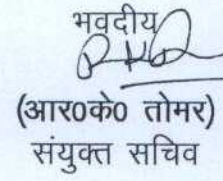 भवदीय
(आर0के0 तोमर)
संयुक्त सचिव